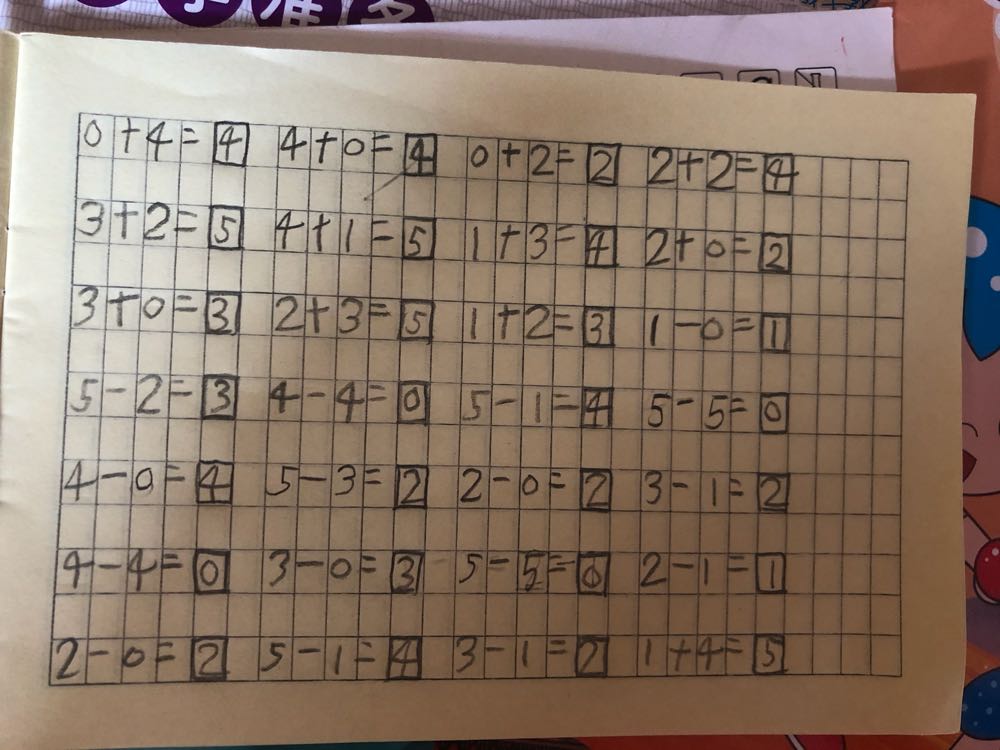 学准备
0+4=4 4+0=4 0+2=2 2+2=4
3+2=5 4+1=5 1+3=4 2+0=2
3+0=3 2+3=5 1+2=3 1-0=1
5-2=3 4-4=0 5-1=4 5-5=0
4-0=4 5-3=2 2-0=2 3-1=2
4-4=0 3-0=3 5-5=0 2-1=1
2-0=2 5-1=4 3-1=2 1+4=5